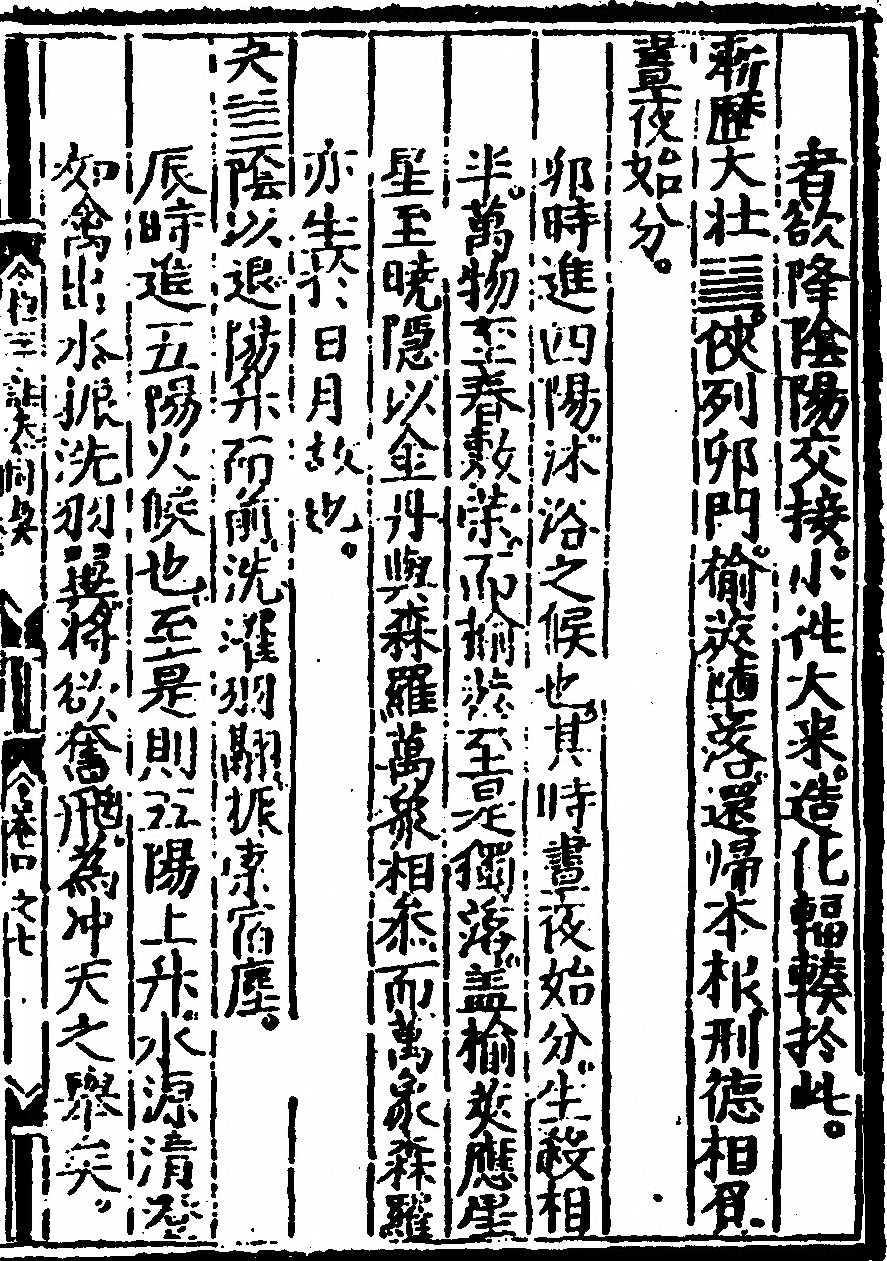 者欲降陰陽交接。小往大来。造化輻輳於此。
漸歴大壮䷡。俠列卯門。榆莢堕落。還帰本根。刑德相負。
晝夜始分。
卯時進四陽沭浴之候也。其時晝夜始分。生殺相
半。萬物至春敷榮。而榆莢至是獨落。盖榆莢應星
星至曉隱以金丹與森羅萬象相叅而萬象森羅
亦生於日月故也。
夬䷪陰以退。陽升而前。洗濯羽翮。振索宿塵。
辰時進五陽火候也。至是則五陽上升。水源清澄
如禽出水。振洗羽翼。將欲奮飛也。為冲天之舉矣。